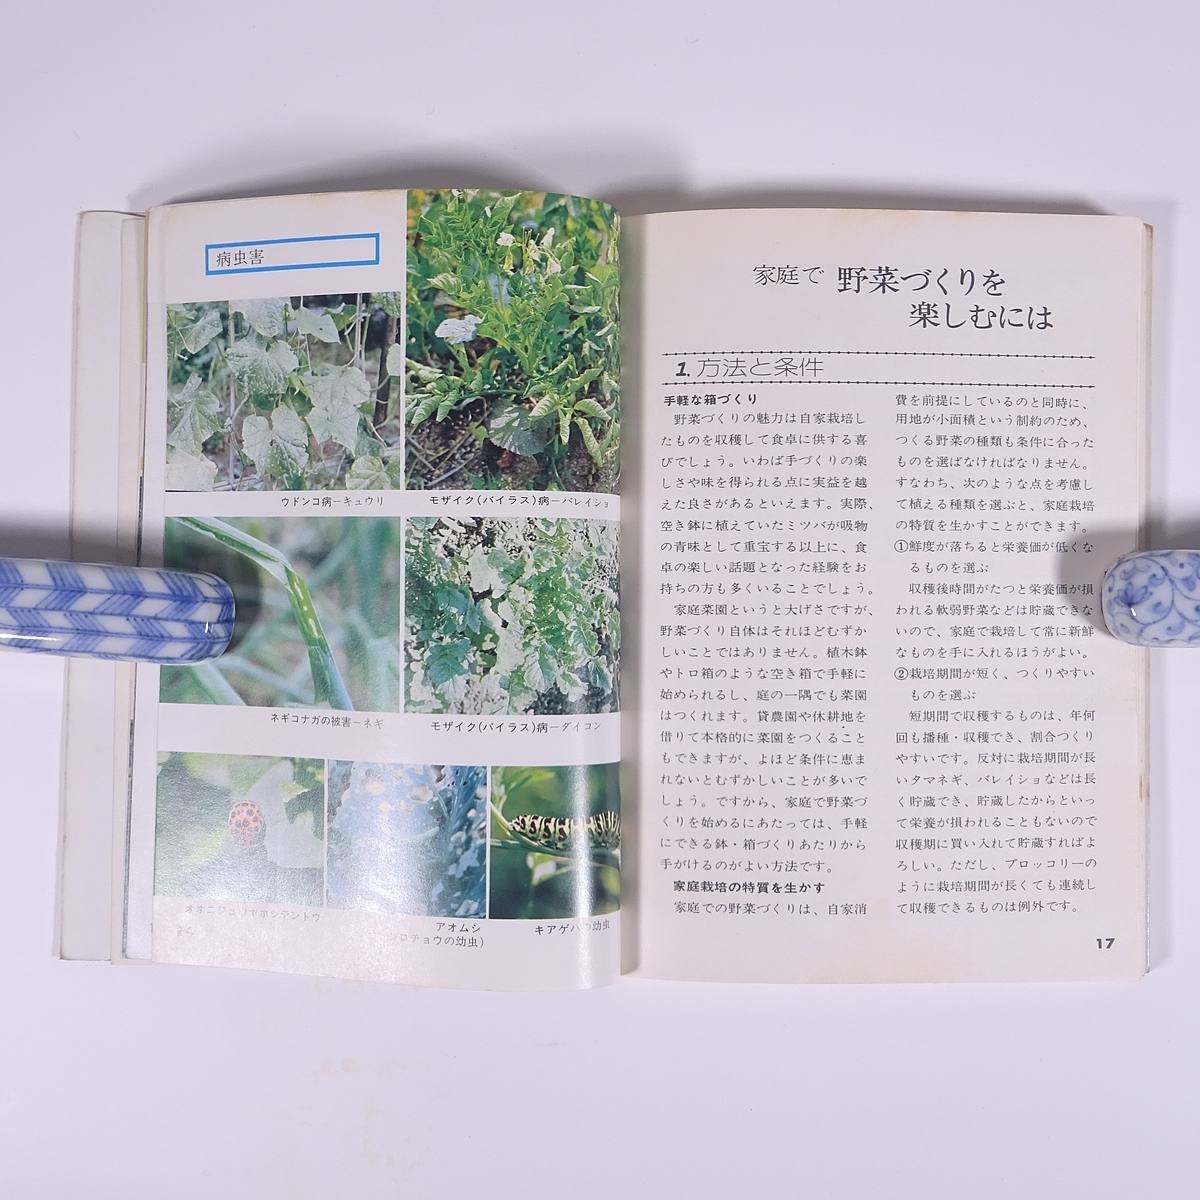 病虫害
ウドンコ病ーキュウリ
モザイク(バイラス)病ーバレイショ
ネギコナガの被害ーネギ
モザイク(バイラス)病ーダイコン
オオニジュウヤホシテントウ
アオムシ
ロチョウの幼虫)
キアゲハの幼虫
家庭で 野菜づくりを
楽しむには
1. 方法と条件
手軽な箱づくり
野菜づくりの魅力は自家栽培し
たものを収穫して食卓に供する喜
びでしょう。いわば手づくりの楽
しさや味を得られる点に実益を越
えた良さがあるといえます。実際、
空き鉢に植えていたミツバが吸物
の青味として重宝する以上に、食
卓の楽しい話題となった経験をお
持ちの方も多くいることでしょう。
家庭菜園というと大げさですが、
野菜づくり自体はそれほどむずか
しいことではありません。植木鉢
やトロ箱のような空き箱で手軽に
始められるし、庭の一隅でも菜園
はつくれます。貸農園や休耕地を
借りて本格的に菜園をつくること
もできますが、よほど条件に恵ま
れないとむずかしいことが多いで
しょう。ですから、家庭で野菜づ
くりを始めるにあたっては、手軽
にできる鉢・箱づくりあたりから
手がけるのがよい方法です。
家庭栽培の特質を生かす
家庭での野菜づくりは、自家消
費を前提にしているのと同時に、
用地が小面積という制約のため、
つくる野菜の種類も条件に合った
ものを選ばなければなりません。
すなわち、次のような点を考慮し
て植える種類を選ぶと、家庭栽培
の特質を生かすことができます。
①鮮度が落ちると栄養価が低くな
るものを選ぶ
収穫後時間がたつと栄養価が損
われる軟弱野菜などは貯蔵できな
いので、家庭で栽培して常に新鮮
なものを手に入れるほうがよい。
②栽培期間が短く、つくりやすい
ものを選ぶ
短期間で収穫するものは、年何
回も播種・収穫でき、割合つくり
やすいです。反対に栽培期間が長
いタマネギ、バレイショなどは長
く貯蔵でき、貯蔵したからといっ
て栄養が損われることもないので
収穫期に買い入れて貯蔵すればよ
ろしい。ただし、ブロッコリーの
ように栽培期間が長くても連続し
て収穫できるものは例外です。
17